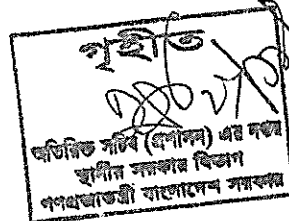 গৃহীত
অতিরিক্ত সচিব (প্রশাসন) এর দপ্তর
স্থানীয় সরকার বিভাগ
গণপ্রজাতন্ত্রী বাংলাদেশ সরকার